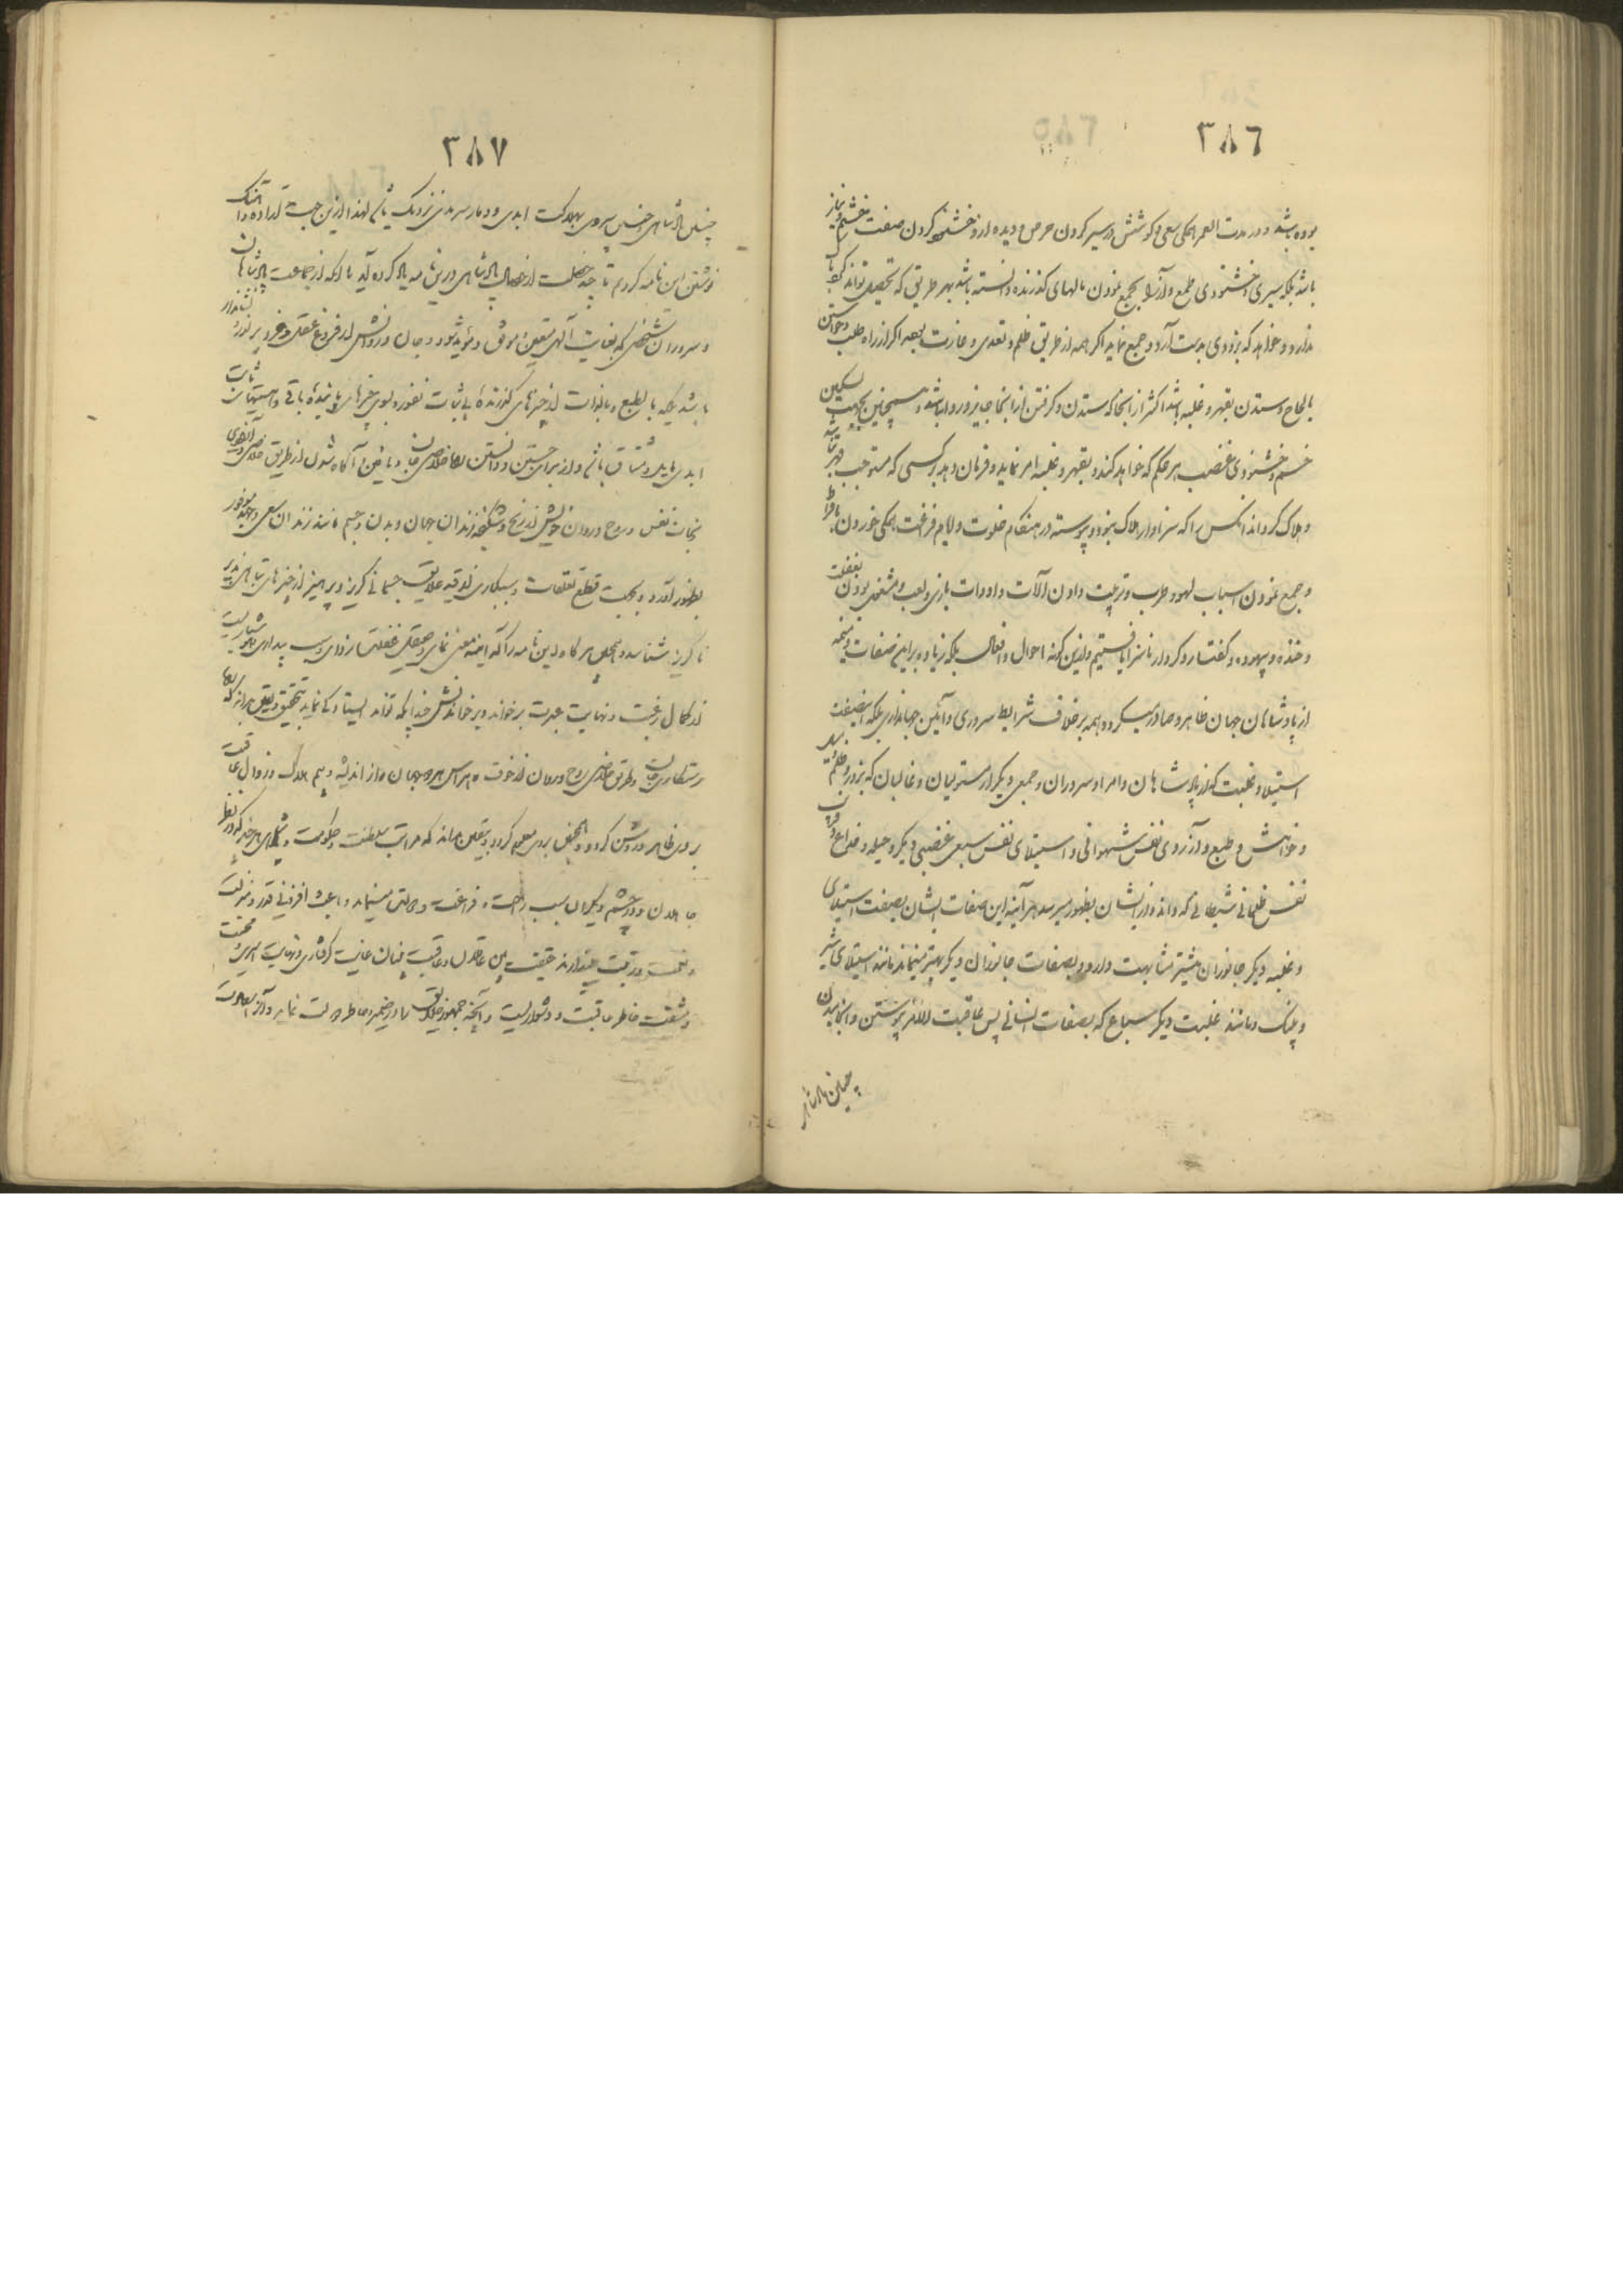 ٣٨٦
بوده باشد و در مدت العمر همکی سعی و کوشش در سیر کردن حرص و دیده از و خشنود کردن صفت خشم و نیاز
باشد بلکه سیری و خشنودی طمع و آز را بجمع نمودن مالهای کذرنده دانسته باشد بهر طریق که تحصیل تواند کرد باک
ندارد و خواهد که بزودی بدست آرد و جمع نماید اکر همه از طریق ظلم و تعدی و غارت بوده اکر از راه طلب و خواستن
با لحاح و ستدن بقهر و غلبه باشد اکثر از انجا که ستدن و کرفتن از انجا جایز و روا نباشد و همچنین بجهت تسکین
خشم و خشنودی غضب هر حکم که خواهد کند و بقهر و غلبه امر نماید و فرمان دهد و کسی که مستوجب قهر نباشد
و هلاک کرداند انکس را که سزاوار هلاک نبود و پیوسته در هنکام خلوت و ایام فراغت همکی خوردن بافراط
و جمع نمودن اسباب لهو و طرب و ترتیب دادن آلات و ادوات بازی و لعب و مشغول بودن بغفلت
و خنده و بیهوده و کفتار و کردار ناسزا دانستیم و ازین کونه احوال و افعال بلکه زیاده بر این صفات ذمیمه
از پادشاهان جهان ظاهر و صادر میکردد همه بر خلاف شرایط سروری و آئین جهانداری بلکه اینصفت
استیلا و غلبت که از پادشاهان و امرا و سروران و جمعی دیکر از مستولیان و غالبان که بزور و ظلم
و خواهش و طمع و آز آرزوی نفس شهوانی و استیلای نفس سبعی غضبی دیکر و حیله و خداع و فریب
نفس ظلمانی شیطانی که دانند از ایشان بظهور میرسد هر آینه این صفات ایشان بصفت استیلای
و غلبه دیکر جانوران بیشتر مشابهت دارد و بصفات جانوران دیکر بهتر مینماند مانند استیلای شیر
و پلنک و مانند غلبت دیکر سباع که بصفات انسانی پس عاقبت الامر پیوستن و انجامیدن
چنین پادشاهی
٣٨٧
چنین پادشاهی و خسیس سروری بهلاکت ابدی و دمار سرمدی نزدیک باشم لهذا ازین جهت اراده و آهنک
نوشتن این نامه کردم تا چند خصلت از خصال پادشاهی درین نامه یاد کرده آید تا هر که از جماعت پادشاهان
و سروران شخصی که بعنایت آلهی متعین و موفق و مؤید شود و جان و روانش از فروغ عقلی و خرد پرنور
باشد بلکه بالطبع و بالذات از چیزهای کذرنده بی ثبات نفور و بسوی چیزهای پاینده باقی
ابدی مایل و مشتاق باشم و از برای جستن و دانستن راه خلاصی جان و یافتن آکاه شدن از طریق خلاصی
نجات نفس و روح و روان خویش از رنج و شکنجه زندان جهان و بدن و جسم مانند زندان سعی و جهد موفور
بظهور آورد و بجهت قطع تعلقات و سبکباری از قید علایق جسمانی کریز و پرهیز از چیزهای تباهی پذیر
ناکزیر شناسد و بالجمله هر کاه این نامه را که آینه معنی نمای و صیقل غفلت زدای و سبب بیداری و هوشیاریست
از کمال رغبت و نهایت عبرت بر خواند و بر خواندنش چندانکه تواند ایستادکی نماید بتحقیق و یقین بداند که راه
رستکاری جانست و طریق خلاصی روح و روان از خوف و هراس هر دو جهان و از اندیشه و بیم هلاک و زوال عاقبت
بر وی ظاهر و روشن کردد و بالجمله بر وی معلوم کردد و بیقین بداند که مراتب سلطنت و حکومت و پادشاهی هر چند که در نظر
جاهلان و در چشم دیکران سبب راحت و فراغت و دولتی مینماید و باعث افزونی قدر و منزلت
و نعمت و رتبت میپندارند حقیقت پیش عاقلان و عاقبت بینان غایت کرفتاری و نهایت اسیری و محنت
و مشقت خاطر عاقبت و دشواریست و آنچه جمهور خلایق را در ضمیر و خاطر